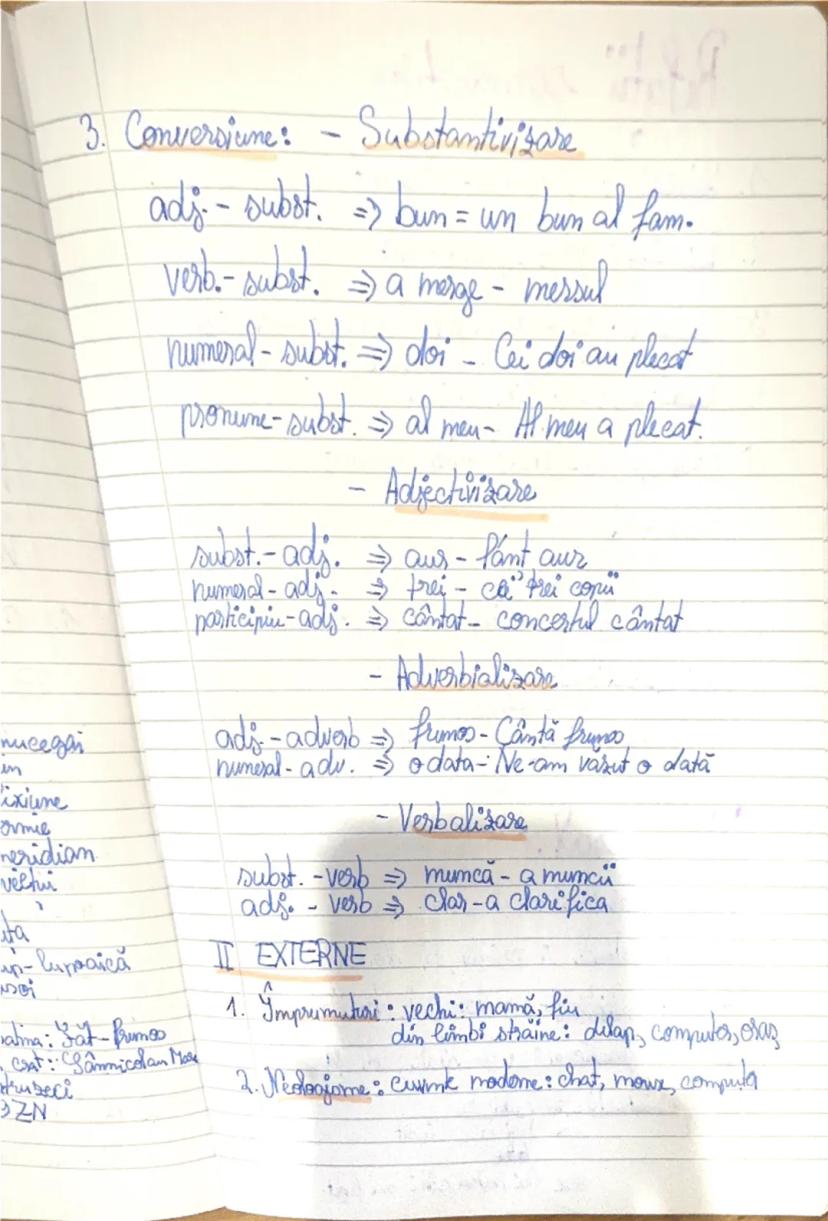 3. Conversiune: - Substantivizare
adj. - subst. => bun = un bun al fam.
verb. - subst. => a merge - mersul
numeral - subst. => doi - Cei doi au plecat
pronume - subst. => al meu - Al meu a plecat.
- Adjectivizare
subst. - adj. => aur - Părț aur
numeral - adj. => trei - cei trei copii
participiu - adj. => cântat - concertul cântat
- Adverbializare
adj. - adverb => frumos - Cântă frumos
numeral - adv. => o data - Ne-am văzut o dată
- Verbalizare
subst. - verb => muncă - a muncii
adj. - verb => clar - a clarifica
II EXTERNE
1. Împrumuturi: vechi: mamă, fiu
din limbi străine: dulap, computer, oraș
2. Neologisme: cuvinte moderne: chat, mouse, computer
mucegai
in
ixiune
ormie
meridian
vechui
uta
up-lupoaică
atina: Făt-Frumos
Sânnicolau Mare
ZN